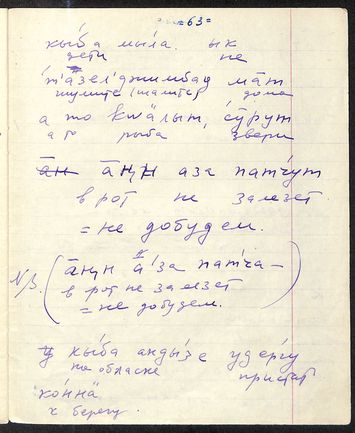 =63=
кы́ба мы́ла. ык
дети не
т'а́зел'джимбад ма̄т
шумите (шалите) дома
а то кwä́лып, сӯ́рут
а то рыба звери
а̄ӊ а̄ӊн аза патчут
в рот не залезет
= не добудем.
NB. а̄ӊн а́'за пат'ча –
в рот не залезет
= не добудем.
кы́ба анды́зе удерѓу
на обласке пристать
ко́ннä
к берегу.